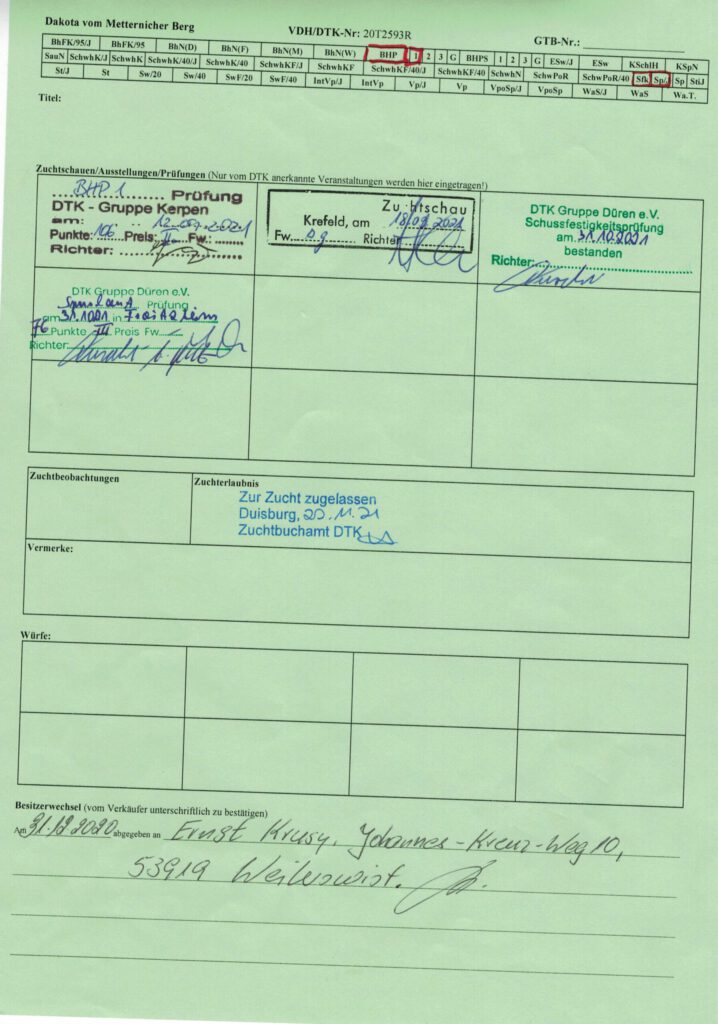 Dakota vom Metternicher Berg VDH/DTK-Nr: 20T2593R GTB-Nr.:
BhFK/95/J BhFK/95 BhN(D) BhN(F) BhN(M) BhN(W) BHP 1 2 3 G BHPS 1 2 3 G ESw/J ESw KSchlH KSpN
SauN SchwhK/J SchwhK SchwhK/40/J SchwhK/40 SchwhKF/J SchwhKF SchwhKF/40/J SchwhKF/40 SchwhN SchwPoR SchwPoR/40 Sfk Sp/J Sp StiJ
St/J St Sw/20 Sw/40 SwF/20 SwF/40 IntVp/J IntVp Vp/J Vp VpoSp/J VpoSp WaS/J WaS Wa.T.
Titel:
Zuchtschauen/Ausstellungen/Prüfungen (Nur vom DTK anerkannte Veranstaltungen werden hier eingetragen!)
BHP 1 Prüfung
DTK - Gruppe Kerpen
am: 12.09.2021
Punkte: 106 Preis: II Fw:
Richter:
Zuchtschau
Krefeld, am 18.09.2021
Fw. sg Richter
DTK Gruppe Düren e.V.
Schussfestigkeitsprüfung
am 31.10.2021
bestanden
Richter:
DTK Gruppe Düren e.V.
Spurlaut Prüfung
am 31.10.21 in
76 Punkte III Preis Fw
Richter:
Zuchtbeobachtungen
Zuchterlaubnis
Zur Zucht zugelassen
Duisburg, 20.11.21
Zuchtbuchamt DTK
Vermerke:
Würfe:
Besitzerwechsel (vom Verkäufer unterschriftlich zu bestätigen)
Am 31.12.2020 abgegeben an Ernst Krusy, Johannes-Kreuz-Weg 10,
53919 Weilerswist.